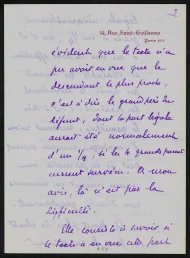 14, Rue Saint-Guillaume
évident que le texte n'a
pu avoir en vue que le
descendant le plus proche,
c'est à dire le grand père du
défunt, dont la part légale
aurait été normalement
d'un 1/4, si les 4 grands parents
eussent survécu. A mon
avis, là n'est pas la
difficulté.
Elle consiste à savoir si
le texte a en vue cette part